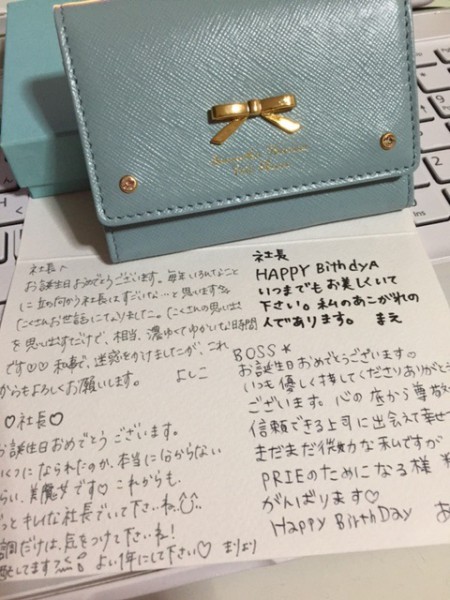 社長へ
お誕生日おめでとうございます。毎年いろんなこと
に立ち向かう社長はすごいな…と思います
たくさんお世話になってました。たくさんの思い出
を思い出すだけで、相当、濃ゆくてゆかいな時間
です♡♡ 私事で、迷惑をかけましたが、これ
からもよろしくお願いします。 よしこ
社長
HAPPY BithdyA
いつまでもお美しくいて
下さい。私のあこがれの
人であります。 まえ
♡社長♡
お誕生日おめでとうございます。
いくつになられたのか、本当に分からない
らい、美魔女です♡ これからも、
っとキレイな社長でいて下さいね
調だけは、気をつけて下さいね!
してます よい1年にして下さい♡ まりより
BOSS*
お誕生日おめでとうございます。
いつも優しく接してくださりありがと
ございます。心の底から尊敬
信頼できる上司に出会えて幸せ
まだまだ微力な私ですが
PRIEのためになる様
がんばります♡
Happy BirthDay あ